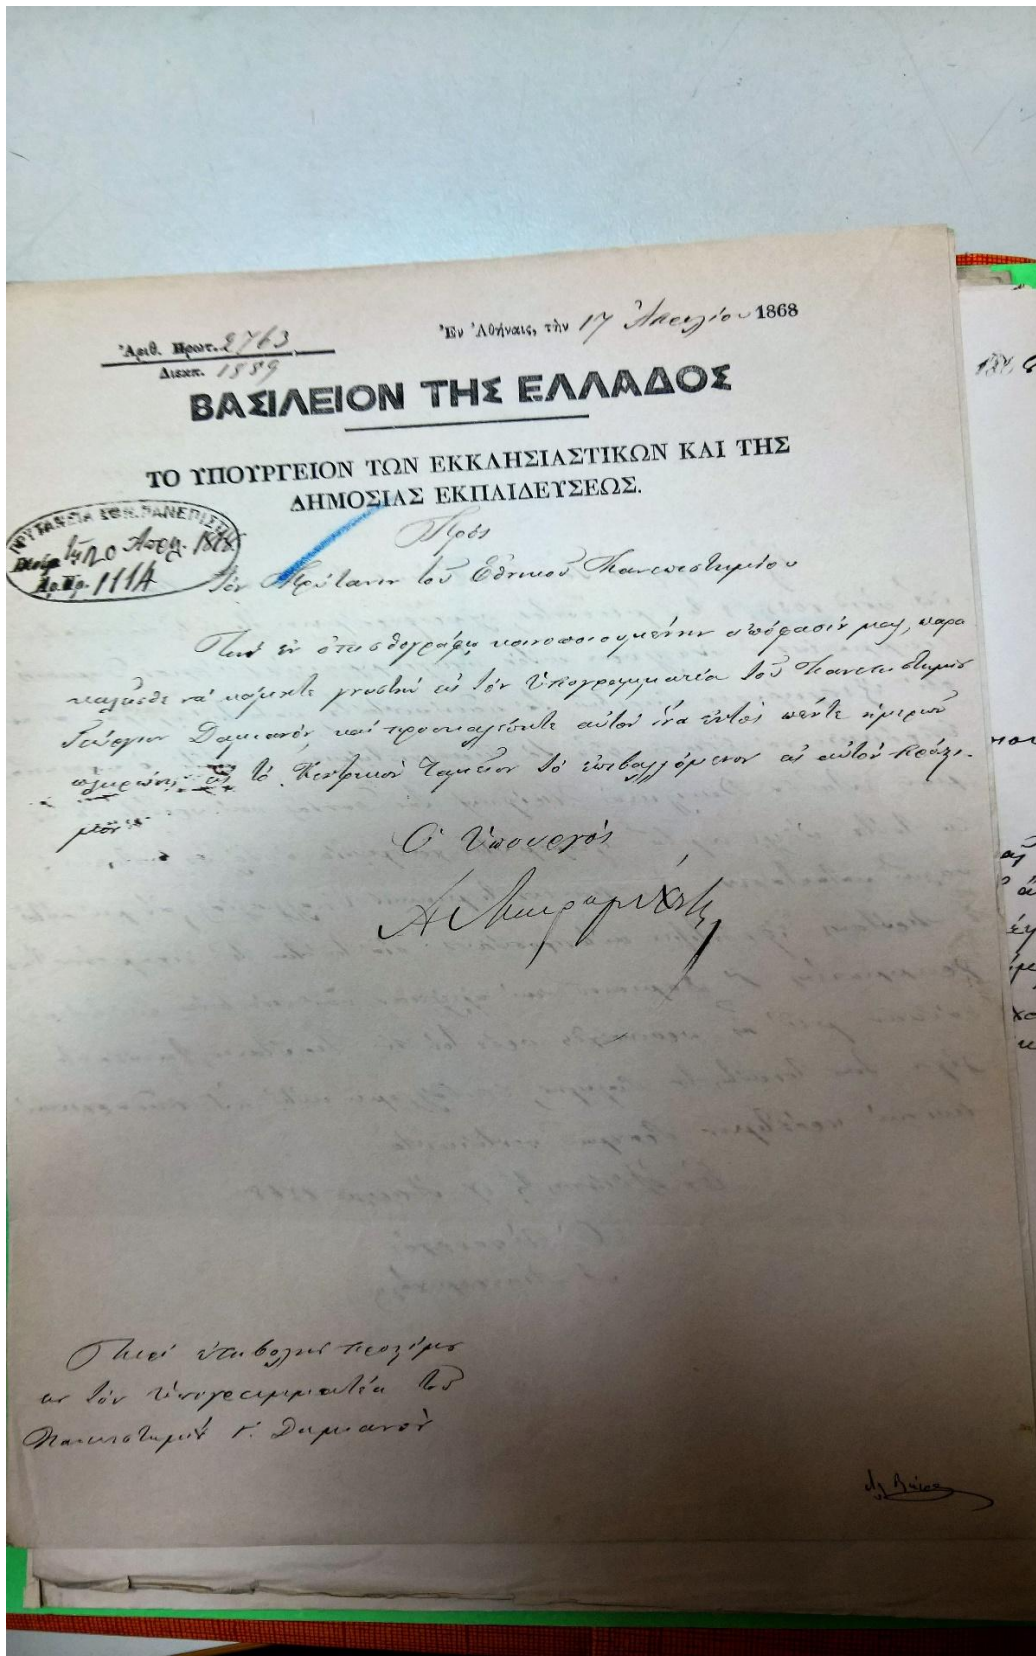 Ἀριθ. Πρωτ. 2763
Διεκπ. 1889
Ἐν Ἀθήναις, τὴν 17 Ἀπριλίου 1868
ΒΑΣΙΛΕΙΟΝ ΤΗΣ ΕΛΛΑΔΟΣ
ΤΟ ΥΠΟΥΡΓΕΙΟΝ ΤΩΝ ΕΚΚΛΗΣΙΑΣΤΙΚΩΝ ΚΑΙ ΤΗΣ
ΔΗΜΟΣΙΑΣ ΕΚΠΑΙΔΕΥΣΕΩΣ.
ΠΡΥΤΑΝΕΙΑ ΕΘΝ. ΠΑΝΕΠΙΣΤ
τῇ 20 Απρ. 1868
Αρ. Πρ. 1114
Πρὸς
τὸν Πρύτανιν τοῦ Ἐθνικοῦ Πανεπιστημίου
Τὴν ἐν ὄπισθογράφῳ κοινοποιουμένην ἀπόφασίν μας, παρα
καλεῖσθε νὰ κάμητε γνωστὴν εἰς τὸν Ὑπογραμματέα τοῦ Πανεπιστημίου
Γεώργιον Δαμιανὸν, καὶ προσκαλέσητε αὐτὸν ἵνα ἐντὸς πέντε ἡμερῶν
πληρώσῃ εἰς τὸ Κεντρικὸν Ταμεῖον τὸ ἐπιβαλλόμενον εἰς αὐτὸν πρόστι-
μον
Ὁ Ὑπουργὸς
Α Μαυρομιχάλης
Περὶ ἐπιβολῆς προστίμου
εἰς τὸν ὑπογραμματέα τοῦ
Πανεπιστημίου Γ. Δαμιανὸν